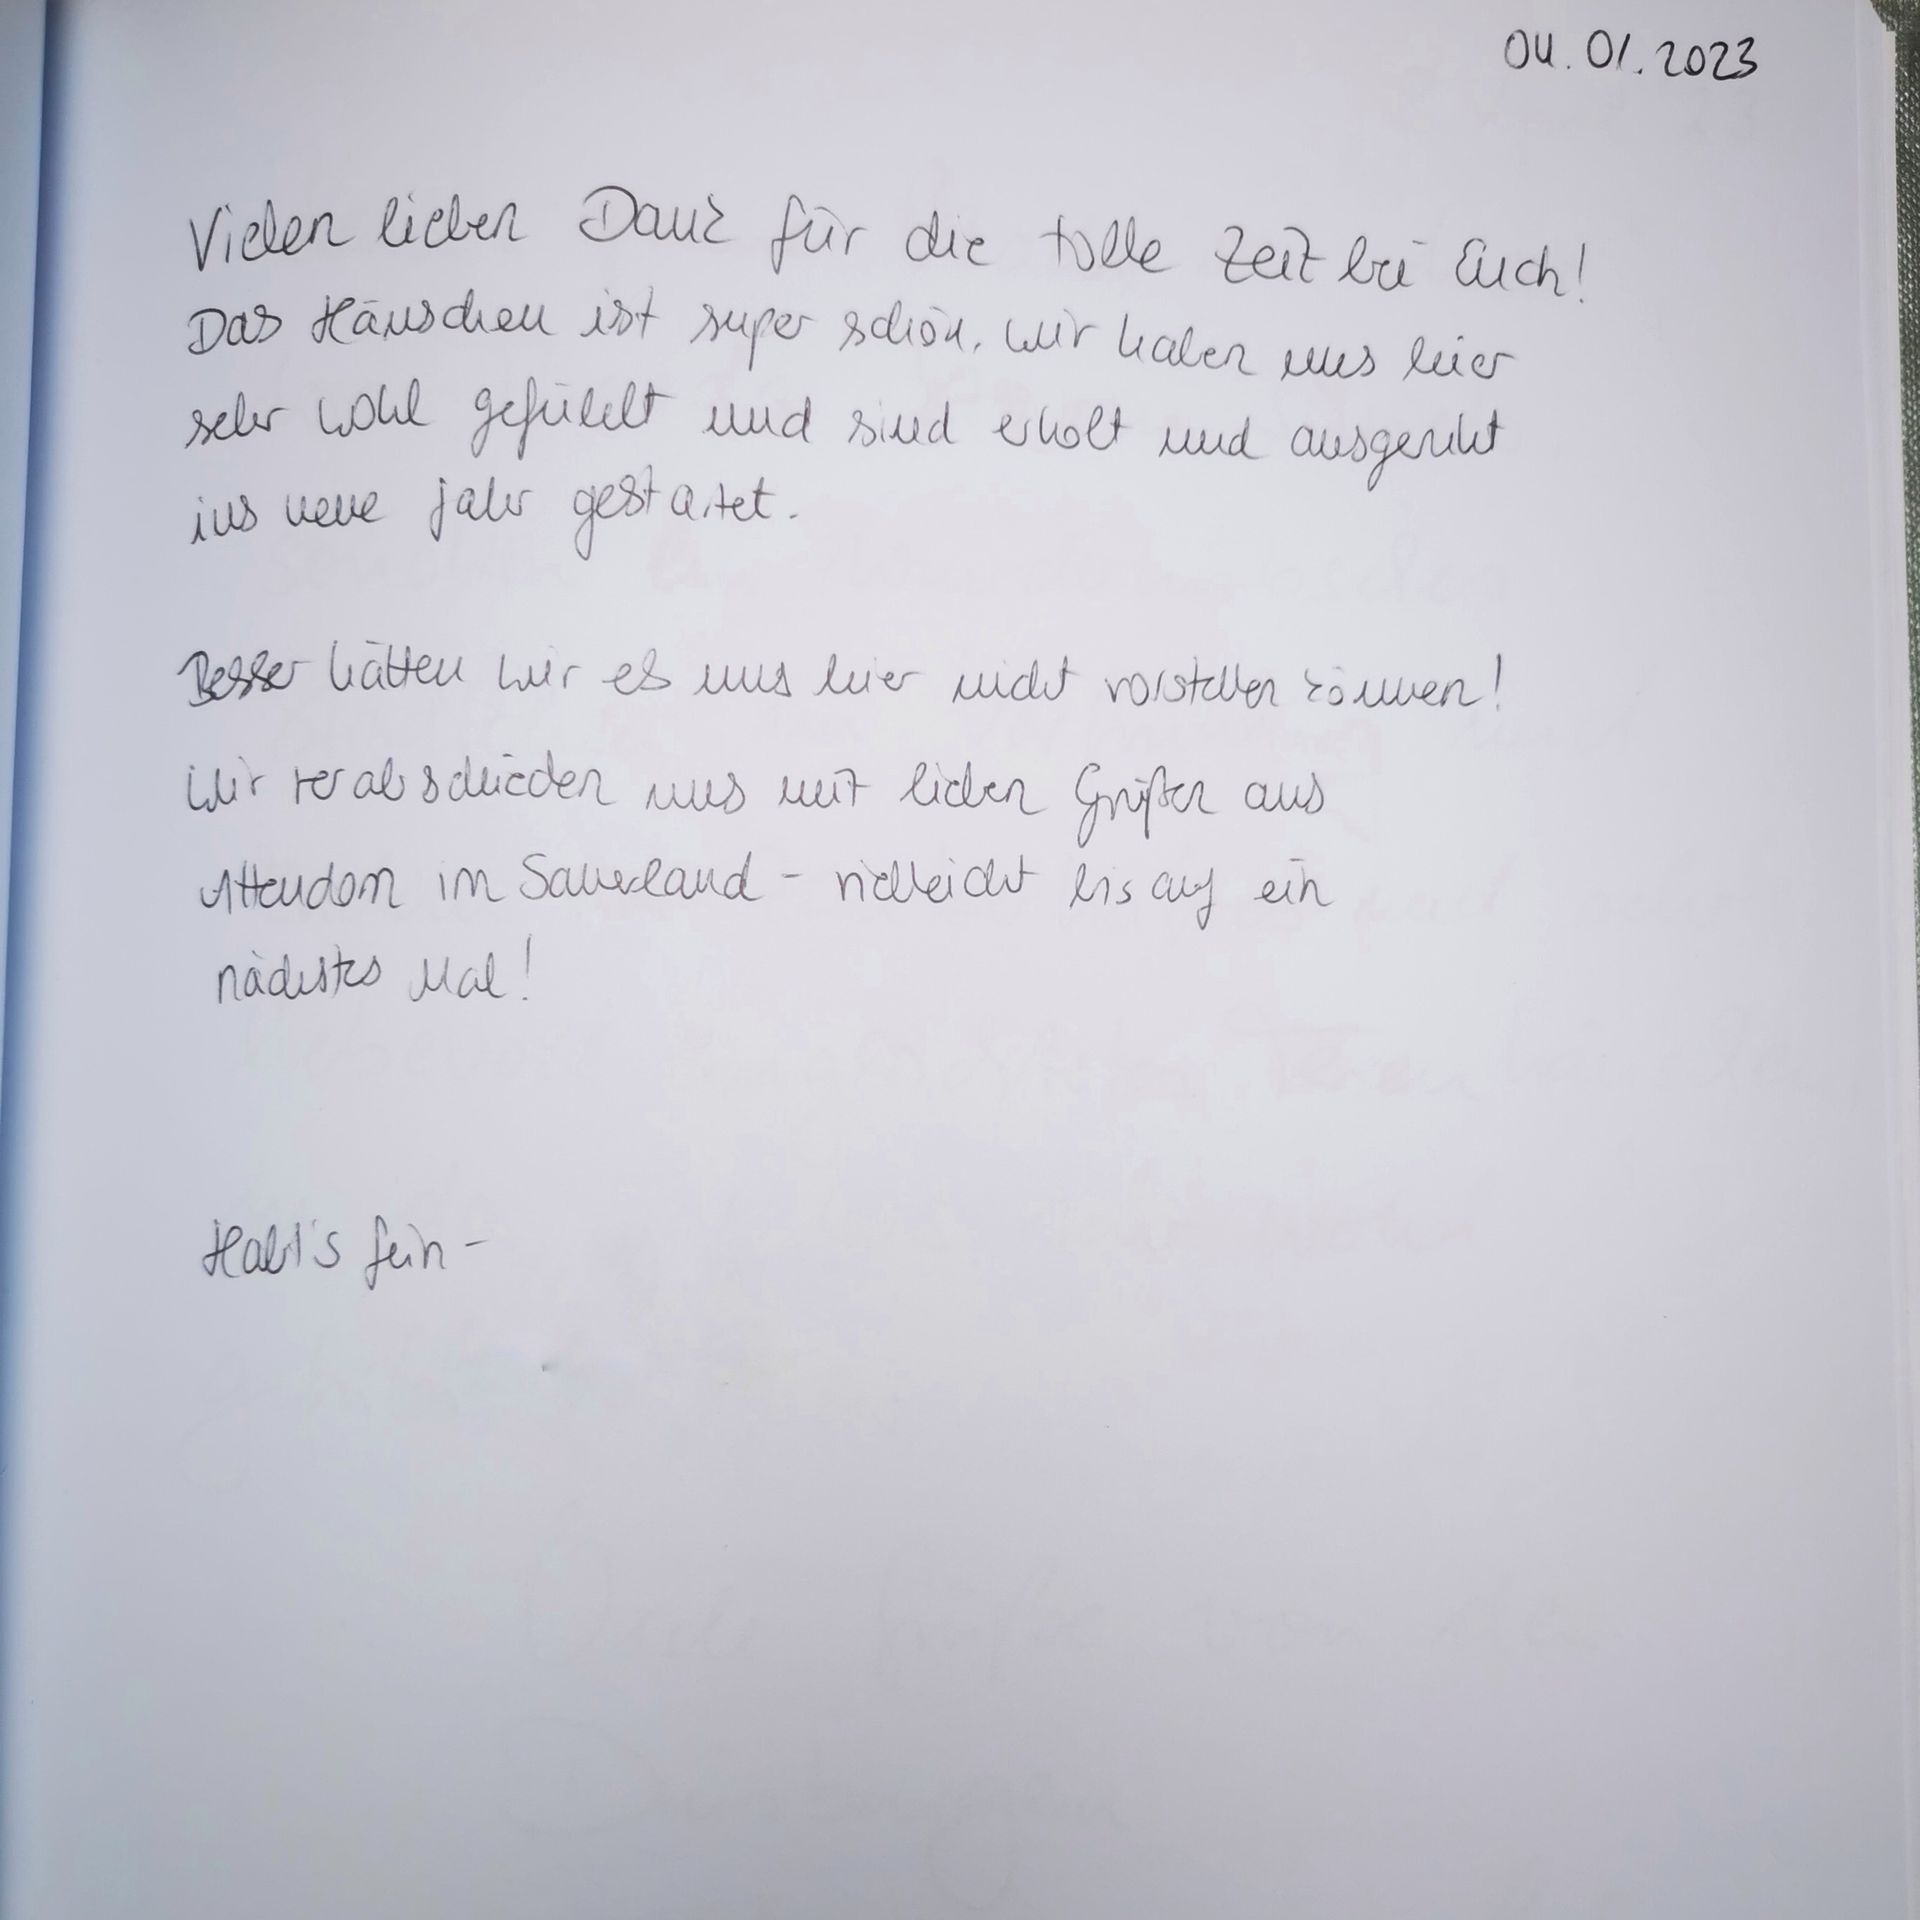 04.01.2023
Vielen lieben Dank für die tolle Zeit bei Euch!
Das Häuschen ist super schön, wir haben uns hier
sehr wohl gefühlt und sind erholt und ausgeruht
ins neue Jahr gestartet.
Besser hätten wir es uns hier nicht vorstellen können!
Wir verabschieden uns mit lieben Grüßen aus
Attendorn im Sauerland - vielleicht bis auf ein
nächstes Mal!
Habt's fein -